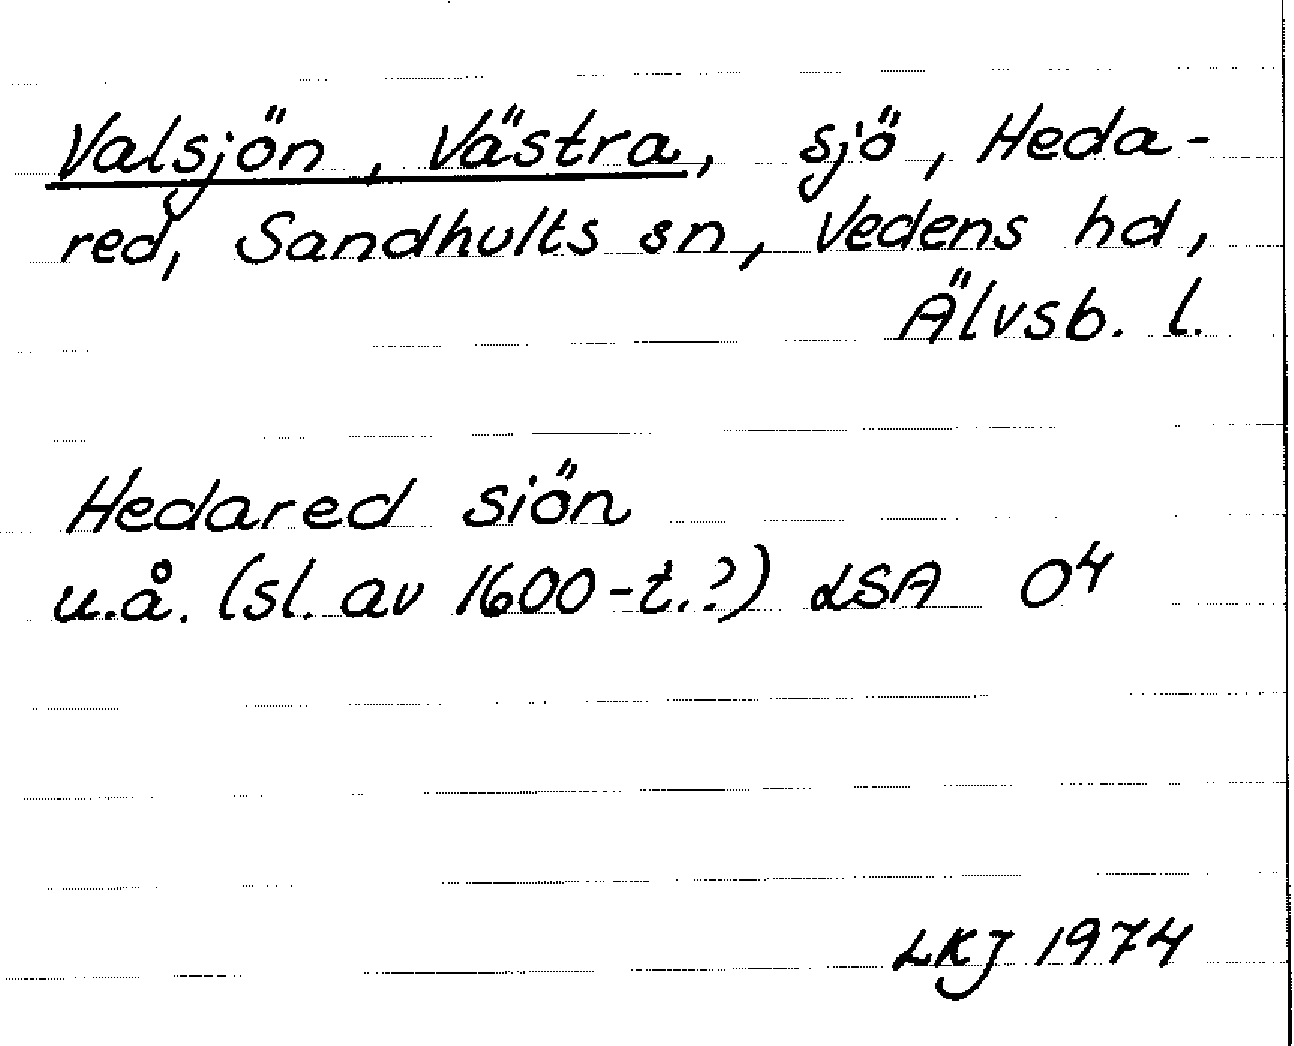 Valsjön, Västra, sjö, Heda-
red, Sandhults sn, Vedens hd,
Älvsb. l.
Hedared siön
u.å. (sl. av 1600-t.?) LSA O4
LKJ 1974